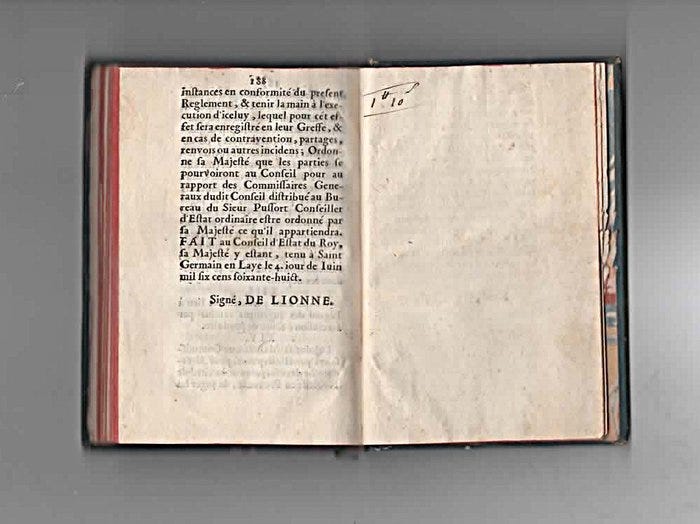 188
instances en conformité du present
Reglement, & tenir la main à l'exe-
cution d'iceluy, lequel pour cét ef-
fet sera enregistré en leur Greffe, &
en cas de contravention, partages,
renvois ou autres incidens; Ordon-
ne sa Majesté que les parties se
pourvoiront au Conseil pour au
rapport des Commissaires Gene-
raux dudit Conseil distribué au Bu-
reau du Sieur Pussort Conseiller
d'Estat ordinaire estre ordonné par
sa Majesté ce qu'il appartiendra.
FAIT au Conseil d'Estat du Roy,
sa Majesté y estant, tenu à Saint
Germain en Laye le 4. iour de Iuin
mil six cens soixante-huict.
Signé, DE LIONNE.
1 10